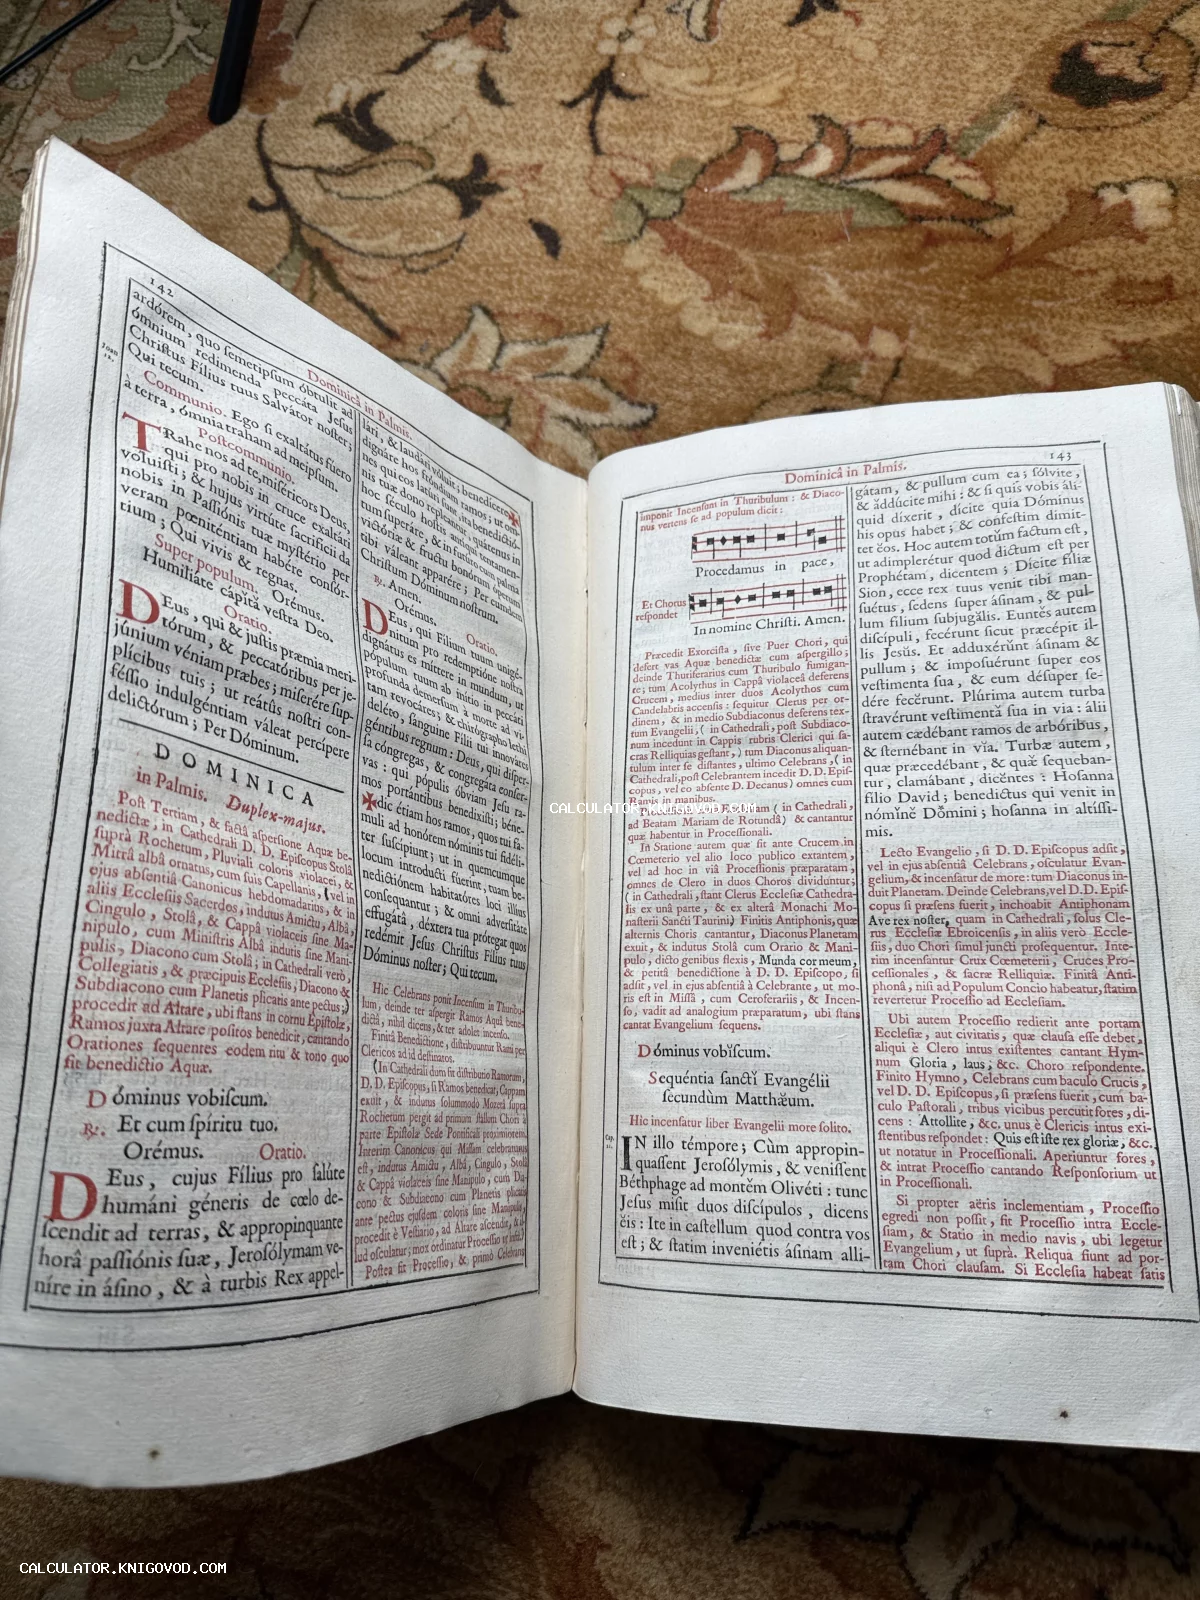 142
Dominicâ in Palmis.
Joan
12.
ardórem, quo semetipsum óbtulit ad
ómnium redimenda peccáta Jesus
Christus Fílius tuus Salvátor noster;
Qui tecum.
Communio. Ego si exaltátus fúero
à terra, ómnia traham ad meipsum.
Postcommunio.
TRahe nos ad te, miséricors Deus,
qui pro nobis in cruce exaltári
voluísti; & hujus virtúte sacrifícii da
nobis in Passiónis tuæ mystério per
veram pœniténtiam habére consór-
tium; Qui vivis & regnas.
Super populum. Orémus.
Humiliáte cápita vestra Deo.
Oratio.
DEus, qui & justis præmia meri-
tórum, & peccatóribus per je-
júnium véniam præbes; miserére sup-
plícibus tuis; ut reátûs nostri con-
féssio indulgéntiam váleat percípere
delictórum; Per Dóminum.
DOMINICA
in Palmis. Duplex-majus.
Post Tertiam, & factâ aspersione Aquæ be-
nedictæ; in Cathedrali D. D. Episcopus Stolâ
suprà Rochetum, Pluviali coloris violacei, &
Mitrâ albâ ornatus, cum suis Capellanis, (vel in
ejus absentiâ Canonicus hebdomadarius, & in
aliis Ecclesiis Sacerdos, indutus Amictu, Albâ,
Cingulo, Stolâ, & Cappâ violaceis sine Ma-
nipulo, cum Ministris Albâ indutis sine Mani-
pulis, Diacono cum Stolâ; in Cathedrali verò,
Collegiatis, & præcipuis Ecclesiis, Diacono &
Subdiacono cum Planetis plicatis ante pectus;)
procedit ad Altare, ubi stans in cornu Epistolæ,
Ramos juxta Altare positos benedicit, cantando
Orationes sequentes eodem ritu & tono quo
fit benedictio Aquæ.
Dóminus vobiscum.
℟. Et cum spíritu tuo.
Orémus. Oratio.
DEus, cujus Fílius pro salúte
humáni géneris de cœlo de-
scendit ad terras, & appropinquante
horâ passiónis suæ, Jerosólymam ve-
níre in ásino, & à turbis Rex appel-
lári, & laudári vóluit; benedícere ✠
dignáre hos fróndium ramos; ut om-
nes qui eos latúri sunt, ita benedictió-
nis tuæ dono repleantur, quátenus in
hoc século hostis antíqui tentamen-
tum superáre, & in futúro cum palma
victóriæ & fructu bonórum óperum
tibi váleant apparére; Per eumdem
Christum Dóminum nostrum.
℟. Amen.
Orémus. Oratio.
DEus, qui Fílium tuum unigé-
nitum pro redemptióne nostra
dignátus es míttere in mundum, ut
pópulum tuum ab inítio in peccáti
profunda demersum à morte ad vi-
tam revocáres; & chirógrapho lethi
deléto, sanguine Filii tui innováres
géntibus regnum: Deus, qui dispér-
sa cóngregas, & congregáta consér-
vas: qui pópulis óbviam Jesu ra-
mos portántibus benedixísti; béne-
✠dic étiam hos ramos, quos tui fá-
muli ad honórem nóminis tui fidéli-
ter suscípiunt; ut in quemcumque
locum introdúcti fúerint, tuam be-
nedictiónem habitatóres loci illíus
consequantur; & omni adversitáte
effugátâ, déxtera tua prótegat quos
redémit Jesus Christus Fílius tuus
Dóminus noster; Qui tecum.
Hic Celebrans ponit Incensum in Thuribu-
lum, deinde ter aspergit Ramos Aquâ bene-
dictâ, nihil dicens, & ter adolet incenso.
Finitâ Benedictione, distribuuntur Rami per
Clericos ad id destinatos.
(In Cathedrali dum fit distributio Ramorum,
D. D. Episcopus, si Ramos benedicat, Cappam
exuit, & indutus solummodo Mozetâ supra
Rochetum pergit ad primum stallum Chori à
parte Epistolæ Sede Pontificali proximiorem.
Interim Canonicus qui Missam celebraturus
est, indutus Amictu, Albâ, Cingulo, Stolâ
& Cappâ violaceis sine Manipulo, cum Dia-
cono & Subdiacono cum Planetis plicatis
ante pectus ejusdem coloris sine Manipulis,
procedit è Vestiario, ad Altare ascendit, & il-
lud osculatur; mox ordinatur Processio ut infrà.)
Postea fit Processio, & primò Celebrans
Dominicâ in Palmis.
143
imponit Incensum in Thuribulum: & Diaco-
nus vertens se ad populum dicit:
Procedamus in pace,
Et Chorus
respondet
In nomine Christi. Amen.
Præcedit Exorcista, sive Puer Chori, qui
defert vas Aquæ benedictæ cum aspergillo;
deinde Thuriferarius cum Thuribulo fumigan-
te; tum Acolythus in Cappâ violaceâ deferens
Crucem, medius inter duos Acolythos cum
Candelabris accensis: sequitur Clerus per or-
dinem, & in medio Subdiaconus deferens tex-
tum Evangelii, (in Cathedrali, post Subdiaco-
num incedunt in Cappis rubris Clerici qui sa-
cras Relliquias gestant,) tum Diaconus aliquan-
tulum inter se distantes, ultimo Celebrans, (in
Cathedrali, post Celebrantem incedit D. D. Epis-
copus, vel eo absente D. Decanus) omnes cum
Ramis in manibus.
(in Cathedrali,
ad Beatam Mariam de Rotundâ) & cantantur
quæ habentur in Processionali.
In Statione autem quæ fit ante Crucem in
Cœmeterio vel alio loco publico extantem,
vel ad hoc in viâ Processionis præparatam,
omnes de Clero in duos Choros dividuntur;
(in Cathedrali, stant Clerus Ecclesiæ Cathedra-
lis ex unâ parte, & ex alterâ Monachi Mo-
nasterii Sancti Taurini) Finitis Antiphonis, quæ
alternis Choris cantantur, Diaconus Planetam
exuit, & indutus Stolâ cum Orario & Mani-
pulo, dicto genibus flexis, Munda cor meum,
& petitâ benedictione à D. D. Episcopo, si
adsit, vel in ejus absentiâ à Celebrante, ut mo-
ris est in Missâ, cum Ceroferariis, & Incen-
so, vadit ad analogium præparatum, ubi stans
cantat Evangelium sequens.
Dóminus vobiscum.
Sequéntia sancti Evangélii
secundùm Matthæum.
Hic incensatur liber Evangelii more solito.
Cap.
21.
IN illo témpore; Cùm appropin-
quassent Jerosólymis, & venissent
Béthphage ad montem Olivéti: tunc
Jesus misit duos discípulos, dicens
eis: Ite in castellum quod contra vos
est; & statim inveniétis ásinam alli-
gátam, & pullum cum ea; sólvite,
& addúcite mihi: & si quis vobis áli-
quid díxerit, dícite quia Dóminus
his opus habet; & conféstim dimit-
tet eos. Hoc autem totum factum est,
ut adimplerétur quod dictum est per
Prophétam, dicentem; Dícite fíliæ
Sion, ecce rex tuus venit tibi man-
suétus, sedens super ásinam, & pul-
lum fílium subjugális. Euntes autem
discípuli, fecérunt sicut præcépit il-
lis Jesus. Et adduxérunt ásinam &
pullum; & imposuérunt super eos
vestimenta sua, & eum désuper se-
dére fecérunt. Plúrima autem turba
stravérunt vestimenta sua in via: álii
autem cædébant ramos de arbóribus,
& sternébant in via. Turbæ autem,
quæ præcedébant, & quæ sequeban-
tur, clamábant, dicéntes: Hosanna
filio David; benedíctus qui venit in
nómine Dómini; hosanna in altíssi-
mis.
Lecto Evangelio, si D. D. Episcopus adsit,
vel in ejus absentiâ Celebrans, osculatur Evan-
gelium, & incensatur de more: tum Diaconus in-
duit Planetam. Deinde Celebrans, vel D. D. Epis-
copus si præsens fuerit, inchoabit Antiphonam
Ave rex noster, quam in Cathedrali, solus Cle-
rus Ecclesiæ Ebroicensis, in aliis verò Eccle-
siis, duo Chori simul juncti prosequentur. Inte-
rim incensantur Crux Cœmeterii, Cruces Pro-
cessionales, & sacræ Relliquiæ. Finitâ Anti-
phonâ, nisi ad Populum Concio habeatur, statim
revertetur Processio ad Ecclesiam.
Ubi autem Processio redierit ante portam
Ecclesiæ, aut civitatis, quæ clausa esse debet,
aliqui è Clero intus existentes cantant Hym-
num Gloria, laus; &c. Choro respondente.
Finito Hymno, Celebrans cum baculo Crucis,
vel D. D. Episcopus, si præsens fuerit, cum ba-
culo Pastorali, tribus vicibus percutit fores, di-
cens: Attollite, &c. unus è Clericis intus exi-
stentibus respondet: Quis est iste rex gloriæ, &c.
ut notatur in Processionali. Aperiuntur fores,
& intrat Processio cantando Responsorium ut
in Processionali.
Si propter aëris inclementiam, Processio
egredi non possit, fit Processio intra Eccle-
siam, & Statio in medio navis, ubi legetur
Evangelium, ut suprà. Reliqua fiunt ad por-
tam Chori clausam. Si Ecclesia habeat satis
CALCULATOR.KNIGOVOD.COM
CALCULATOR.KNIGOVOD.COM